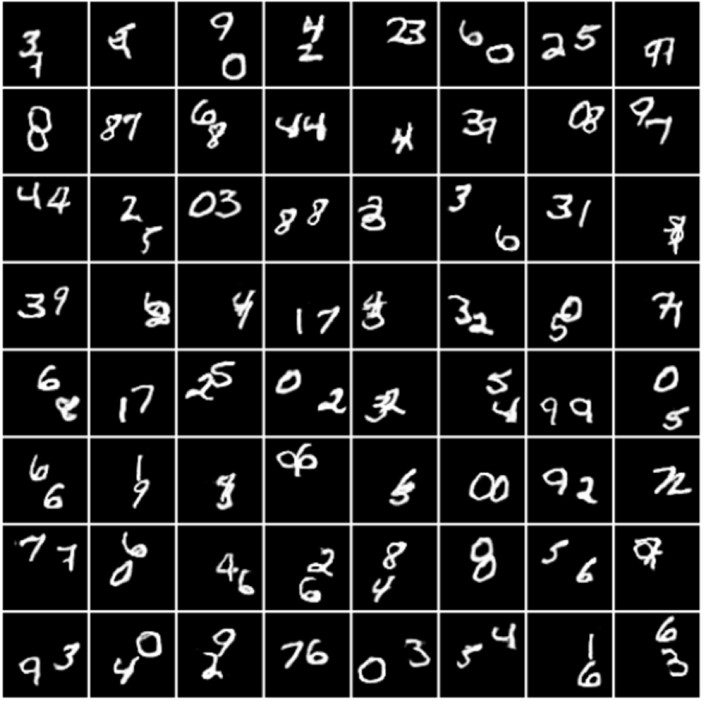 37 90 42 23 60 25
87 68 44 39 08 97
44 25 03 88 36 31
39 17 32 05
68 17 25 02 32 54 99 05
66 19 06 00 92 72
77 60 46 26 84 56
93 40 92 76 03 54 16 63